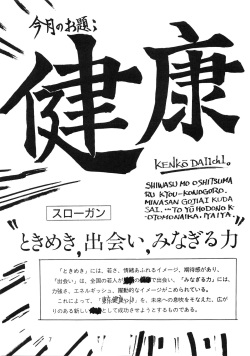 今月のお題;
健康
KENKŌ DAIICHI.
SHIWASU MO OSHITSUMA
RU KYOU-KONOGORO.
MINASAN GOJIAI KUDA
SAI. ...TO YŪ HODONO K
OTOMONAIKA. IYAIYA
スローガン
"ときめき,出会い,みなぎる力"
「ときめき」には、若さ、情緒あふれるイメージ、期待感があり、
「出会い」は、全国の若人が
「みなぎる力」には、
力強さ、エネルギッシュ、躍動的なイメージがこめられている。
これによって、
を、未来への息吹をそなえた、広が
りのある新しい
として成功させようとするものである。